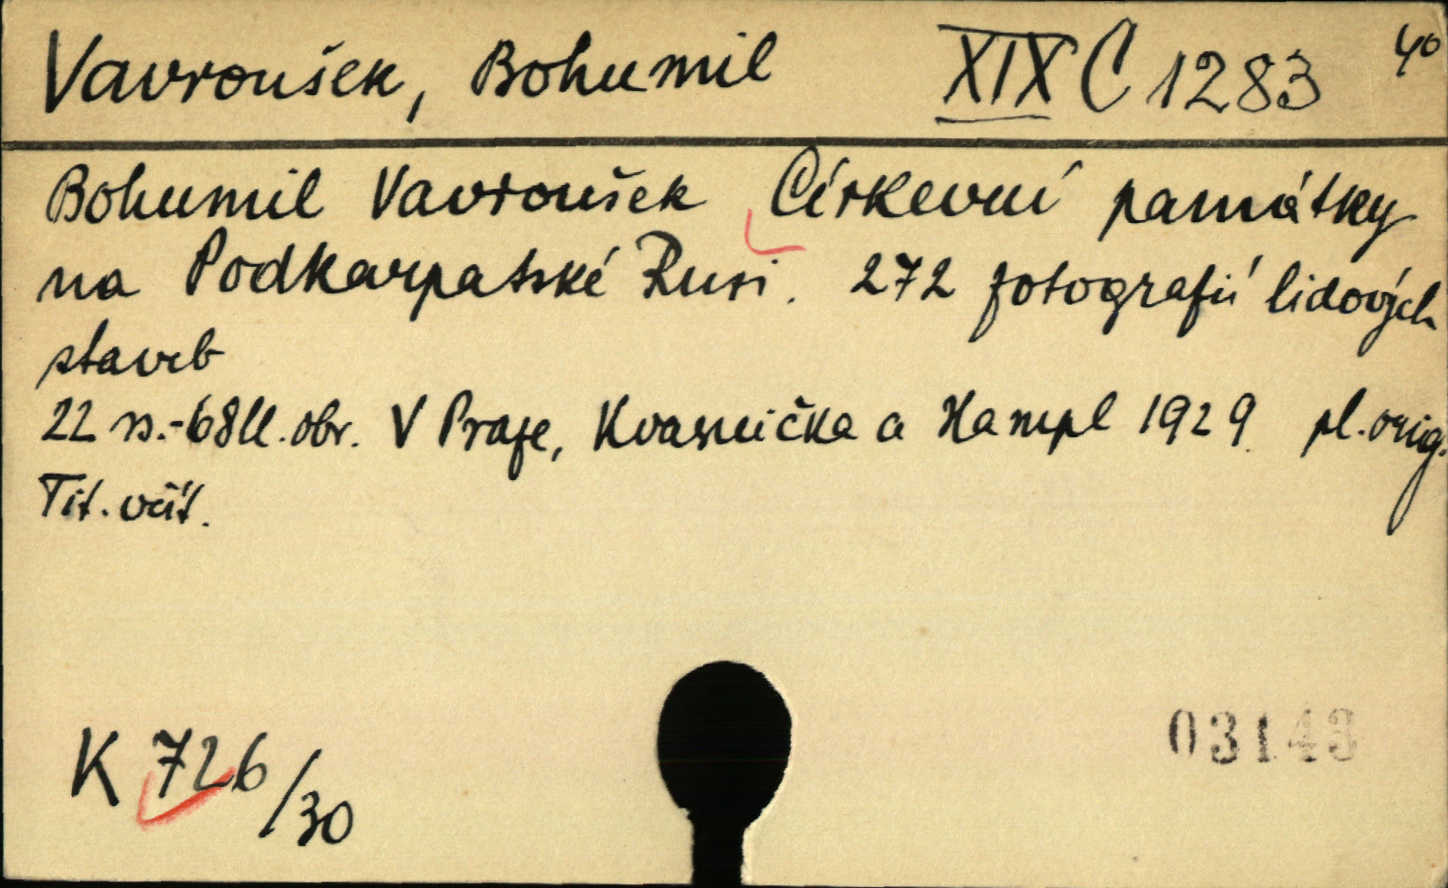 Vavroušek, Bohumil XIX C 1283 4°
Bohumil Vavroušek Církevní památky
na Podkarpatské Rusi. 272 fotografií lidových
staveb
22 s.-68 ll. obr. V Praze, Kvasnička a Hampl 1929 pl. orig.
Tit. včít.
K 726/30
03143